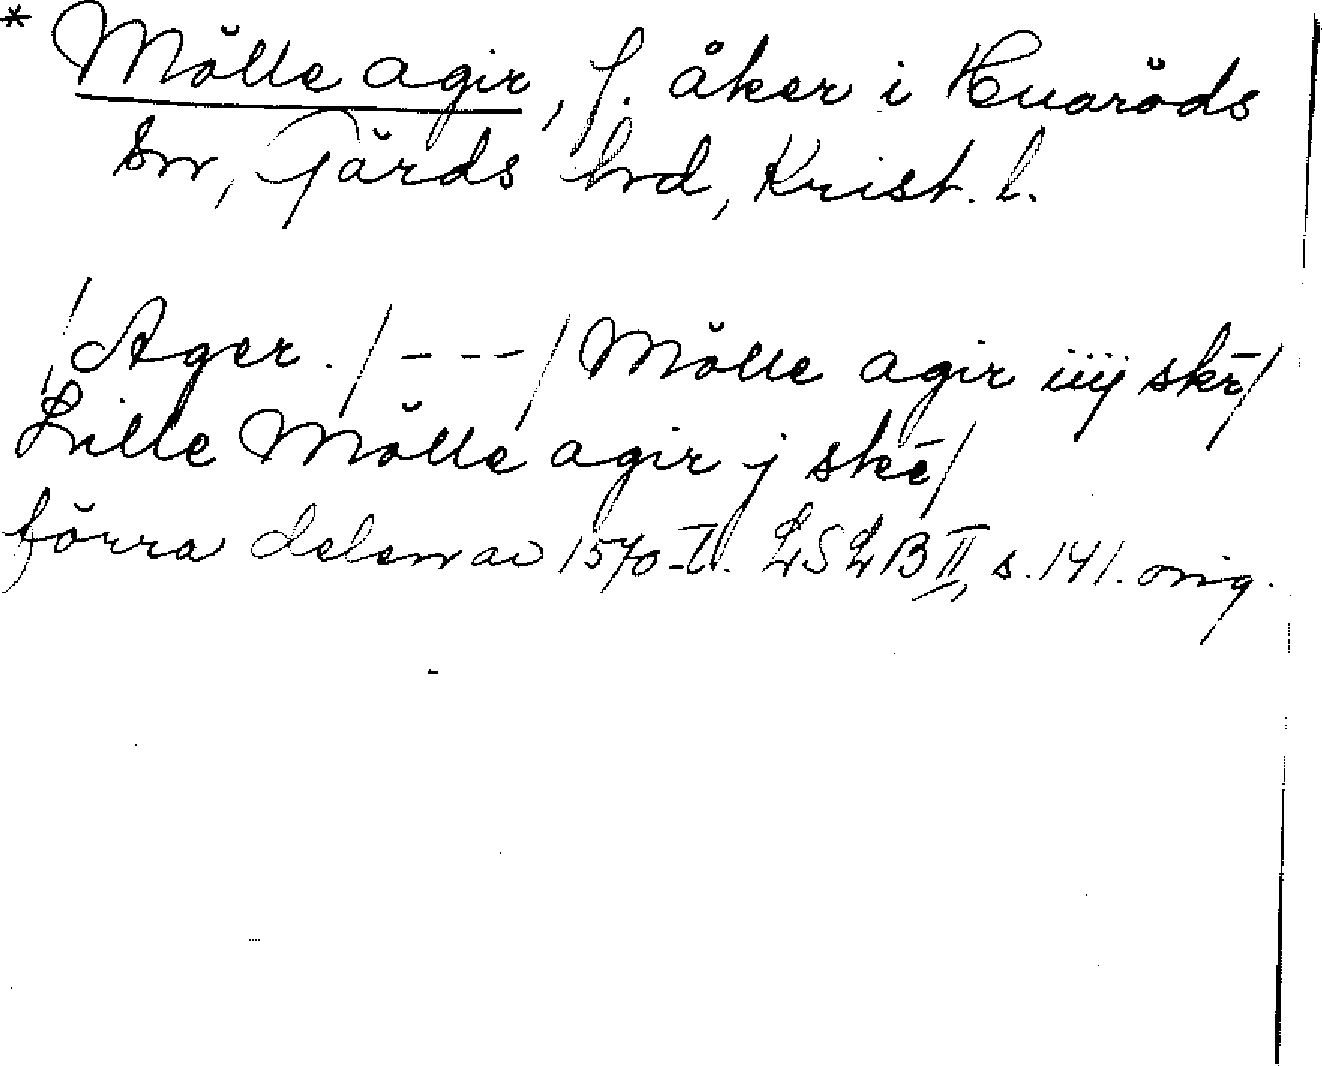 * Mölle agir, f. åker i Huaröds
sn, Gärds hrd, Krist. l.
/Ager./---/Mölle agir iiij skē/
Lille Mölle agir j skē/
förra delen av 1570-t. LSLB II, s. 141. orig.